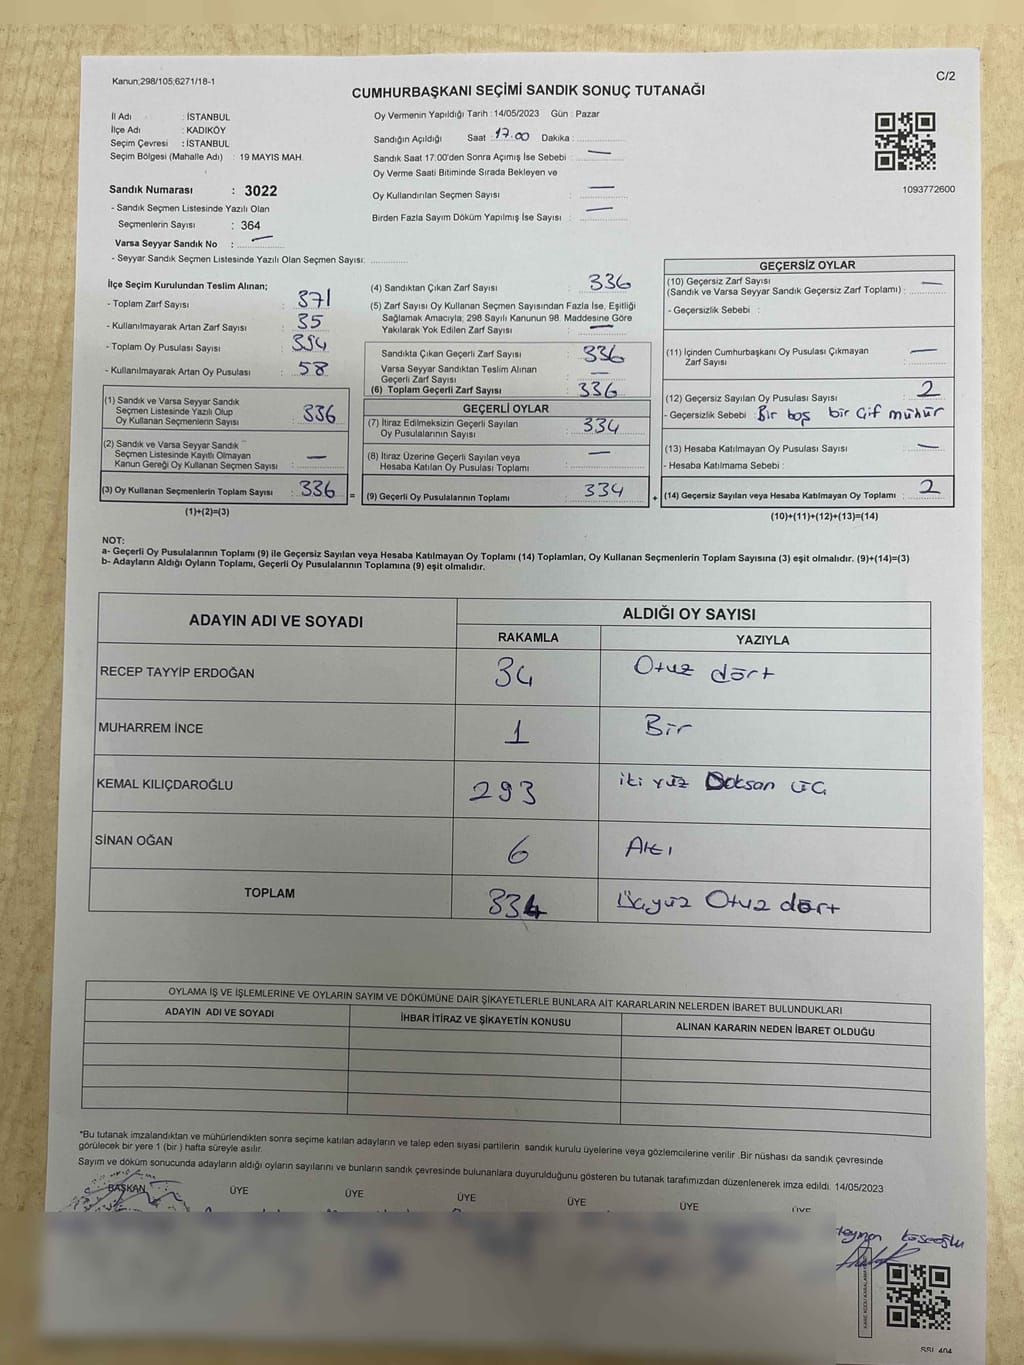 Kanun;298/105;6271/18-1
C/2
CUMHURBAŞKANI SEÇİMİ SANDIK SONUÇ TUTANAĞI
İl Adı : İSTANBUL
İlçe Adı : KADIKÖY
Seçim Çevresi : İSTANBUL
Seçim Bölgesi (Mahalle Adı) : 19 MAYIS MAH.
Sandık Numarası : 3022
- Sandık Seçmen Listesinde Yazılı Olan
Seçmenlerin Sayısı : 364
Varsa Seyyar Sandık No : —
- Seyyar Sandık Seçmen Listesinde Yazılı Olan Seçmen Sayısı:
Oy Vermenin Yapıldığı Tarih : 14/05/2023 Gün : Pazar
Sandığın Açıldığı Saat : 17.00 Dakika :
Sandık Saat 17:00'den Sonra Açımış İse Sebebi : —
Oy Verme Saati Bitiminde Sırada Bekleyen ve
Oy Kullandırılan Seçmen Sayısı : —
Birden Fazla Sayım Döküm Yapılmış İse Sayısı : —
1093772600
İlçe Seçim Kurulundan Teslim Alınan;
- Toplam Zarf Sayısı : 371
- Kullanılmayarak Artan Zarf Sayısı : 35
- Toplam Oy Pusulası Sayısı : 394
- Kullanılmayarak Artan Oy Pusulası : 58
(1) Sandık ve Varsa Seyyar Sandık
Seçmen Listesinde Yazılı Olup
Oy Kullanan Seçmenlerin Sayısı : 336
(2) Sandık ve Varsa Seyyar Sandık
Seçmen Listesinde Kayıtlı Olmayan
Kanun Gereği Oy Kullanan Seçmen Sayısı : —
(3) Oy Kullanan Seçmenlerin Toplam Sayısı : 336 =
(1)+(2)=(3)
(4) Sandıktan Çıkan Zarf Sayısı : 336
(5) Zarf Sayısı Oy Kullanan Seçmen Sayısından Fazla İse, Eşitliği
Sağlamak Amacıyla; 298 Sayılı Kanunun 98. Maddesine Göre
Yakılarak Yok Edilen Zarf Sayısı : —
Sandıkta Çıkan Geçerli Zarf Sayısı : 336
Varsa Seyyar Sandıktan Teslim Alınan
Geçerli Zarf Sayısı : —
(6) Toplam Geçerli Zarf Sayısı : 336
GEÇERLİ OYLAR
(7) İtiraz Edilmeksizin Geçerli Sayılan
Oy Pusulalarının Sayısı : 334
(8) İtiraz Üzerine Geçerli Sayılan veya
Hesaba Katılan Oy Pusulası Toplamı : —
(9) Geçerli Oy Pusulalarının Toplamı : 334 +
GEÇERSİZ OYLAR
(10) Geçersiz Zarf Sayısı
(Sandık ve Varsa Seyyar Sandık Geçersiz Zarf Toplamı) : —
- Geçersizlik Sebebi :
(11) İçinden Cumhurbaşkanı Oy Pusulası Çıkmayan
Zarf Sayısı : —
(12) Geçersiz Sayılan Oy Pusulası Sayısı : 2
- Geçersizlik Sebebi : Bir boş bir Çif mühür
(13) Hesaba Katılmayan Oy Pusulası Sayısı : —
- Hesaba Katılmama Sebebi :
(14) Geçersiz Sayılan veya Hesaba Katılmayan Oy Toplamı : 2
(10)+(11)+(12)+(13)=(14)
NOT:
a- Geçerli Oy Pusulalarının Toplamı (9) ile Geçersiz Sayılan veya Hesaba Katılmayan Oy Toplamı (14) Toplamları, Oy Kullanan Seçmenlerin Toplam Sayısına (3) eşit olmalıdır. (9)+(14)=(3)
b- Adayların Aldığı Oyların Toplamı, Geçerli Oy Pusulalarının Toplamına (9) eşit olmalıdır.
ADAYIN ADI VE SOYADI ALDIĞI OY SAYISI
RAKAMLA YAZIYLA
RECEP TAYYİP ERDOĞAN 34 Otuz dört
MUHARREM İNCE 1 Bir
KEMAL KILIÇDAROĞLU 293 iki yüz Doksan üÇ
SİNAN OĞAN 6 Altı
TOPLAM 334 Üçyüz Otuz dört
OYLAMA İŞ VE İŞLEMLERİNE VE OYLARIN SAYIM VE DÖKÜMÜNE DAİR ŞİKAYETLERLE BUNLARA AİT KARARLARIN NELERDEN İBARET BULUNDUKLARI
ADAYIN ADI VE SOYADI İHBAR İTİRAZ VE ŞİKAYETİN KONUSU ALINAN KARARIN NEDEN İBARET OLDUĞU
*Bu tutanak imzalandıktan ve mühürlendikten sonra seçime katılan adayların ve talep eden siyasi partilerin sandık kurulu üyelerine veya gözlemcilerine verilir .Bir nüshası da sandık çevresinde
görülecek bir yere 1 (bir ) hafta süreyle asılır.
Sayım ve döküm sonucunda adayların aldığı oyların sayılarını ve bunların sandık çevresinde bulunanlara duyurulduğunu gösteren bu tutanak tarafımızdan düzenlenerek imza edildi. 14/05/2023
BAŞKAN ÜYE ÜYE ÜYE ÜYE ÜYE ÜYE